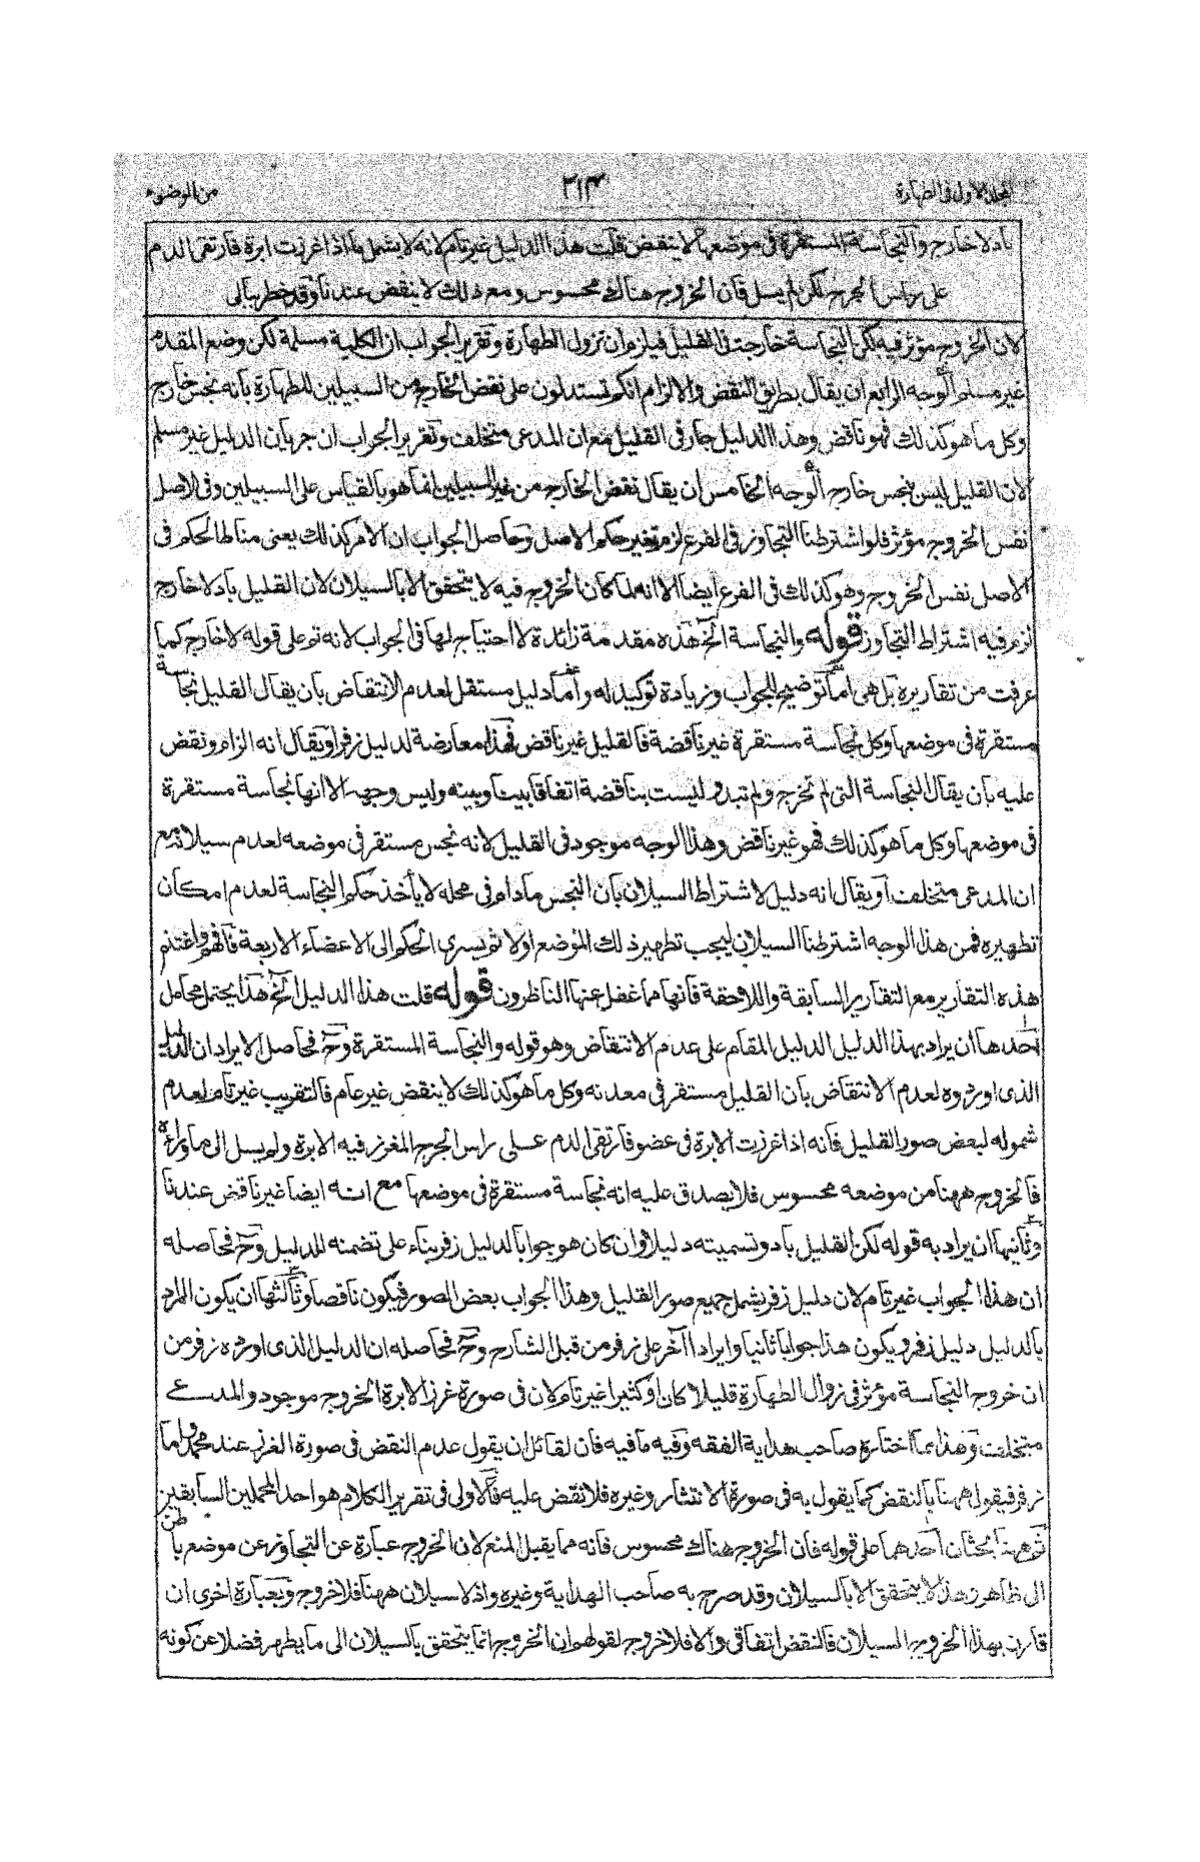 المجلد الاول فى الطهارة
٢١٣
من الوضوء
باد لا خارج والنجاسة المستقرة فى موضعها لا ينقض قلت هذا الدليل غير تام لانه لا يشمل ما اذا غرزت ابرة فارتقى الدم
على راس الجرح لكن لم يسل فان الخروج هناك محسوس ومع ذلك لا ينقض عندنا وقد خطر ببالى
لان الخروج مؤثر فيه لكن النجاسة خارجة فى القليل فيلزم ان تزول الطهارة وتقرير الجواب ان الكلية مسلمة لكن وضع المقدم
غير مسلم الوجه الرابع ان يقال بطريق النقض والالزام انكم تستدلون على نقض الخارج من السبيلين للطهارة بانه نجس خارج
وكل ما هو كذلك فهو ناقض وهذا الدليل جار فى القليل مع ان المدعى متخلف وتقرير الجواب ان جريان الدليل غير مسلم
لان القليل ليس بنجس خارج الوجه الخامس ان يقال نقض الخارج من غير السبيلين انما هو بالقياس على السبيلين وفى الاصل
نفس الخروج مؤثر فلو اشترطنا التجاوز فى الفرع لزم تغير حكم الاصل وحاصل الجواب ان الامر كذلك يعنى مناط الحكم فى
الاصل نفس الخروج وهو كذلك فى الفرع ايضا الا انه لما كان الخروج فيه لا يتحقق الا بالسيلان لان القليل باد لا خارج
لزم فيه اشتراط التجاوز قوله والنجاسة الخ هذه مقدمة زائدة لا احتياج لها فى الجواب لانه تم على قوله لا خارج كما
عرفت من تقاريره بل هى اما توضيح للجواب وزيادة توكيد له واما دليل مستقل لعدم الانتقاض بان يقال القليل نجاسة
مستقرة فى موضعها وكل نجاسة مستقرة غير ناقضة فالقليل غير ناقض فهذا معارضة لدليل زفر او يقال انه الزام ونقض
عليه بان يقال النجاسة التى لم تخرج ولم تبدو ليست بناقضة اتفاقا بيننا وبينه وليس وجهه الا انها نجاسة مستقرة
فى موضعها وكل ما هو كذلك فهو غير ناقض وهذا الوجه موجود فى القليل لانه نجس مستقر فى موضعه لعدم سيلانه مع
ان المدعى متخلف او يقال انه دليل لاشتراط السيلان بان النجس ما دام فى محله لا يأخذ حكم النجاسة لعدم امكان
تطهيره فمن هذا الوجه اشترطنا السيلان ليجب تطهير ذلك الموضع اولا ثم يسرى الحكم الى الاعضاء الاربعة فافهم واغتنم
هذه التقارير مع التقارير السابقة واللاحقة فانها مما غفل عنها الناظرون قوله قلت هذا الدليل الخ هذا يحتمل محامل
احدها ان يراد بهذا الدليل الدليل المقام على عدم الانتقاض وهو قوله والنجاسة المستقرة وح فحاصل الايراد ان الدليل
الذى اوردوه لعدم الانتقاض بان القليل مستقر فى معدنه وكل ما هو كذلك لا ينقض غير عام فالتقريب غير تام لعدم
شموله لبعض صور القليل فانه اذا غرزت الابرة فى عضو فارتقى الدم على راس الجرح المغرز فيه الابرة ولم يسل الى ما وراءه
فالخروج ههنا من موضعه محسوس فلا يصدق عليه انه نجاسة مستقرة فى موضعها مع انه ايضا غير ناقض عندنا
وثانيها ان يراد به قوله لكن القليل باد وتسميته دليلا وان كان هو جوابا لدليل زفر بناء على تضمنه للدليل وح فحاصله
ان هذا الجواب غير تام لان دليل زفر يشمل جميع صور القليل وهذا الجواب بعض الصور فيكون ناقصا وثالثها ان يكون المراد
بالدليل دليل زفر ويكون هذا جوابا ثانيا وايرادا آخر على زفر من قبل الشارح وح فحاصله ان الدليل الذى اورده زفر من
ان خروج النجاسة مؤثر فى زوال الطهارة قليلا كان او كثيرا غير تام لان فى صورة غرز الابرة الخروج موجود والمدعى
متخلف وهذا مما اختاره صاحب هداية الفقه وفيه ما فيه فان لقائل ان يقول عدم النقض فى صورة الغرز عند محمد واما
زفر فيقول ههنا بالنقض كما يقول به فى صورة الانتثار وغيره فلا نقض عليه فالاولى فى تقرير الكلام هو احد المحملين السابقين
ثم ههنا بحثان احدهما على قوله فان الخروج هناك محسوس فانه مما يقبل المنع لان الخروج عبارة عن التجاوز عن موضع باطن
الى ظاهر وهذا لا يتحقق الا بالسيلان وقد صرح به صاحب الهداية وغيره واذ لا سيلان ههنا فلا خروج وبعبارة اخرى ان
قارن بهذا الخروج السيلان فالنقض اتفاقى والا فلا خروج لقولهم ان الخروج انما يتحقق بالسيلان الى ما يطهر فضلا عن كونه